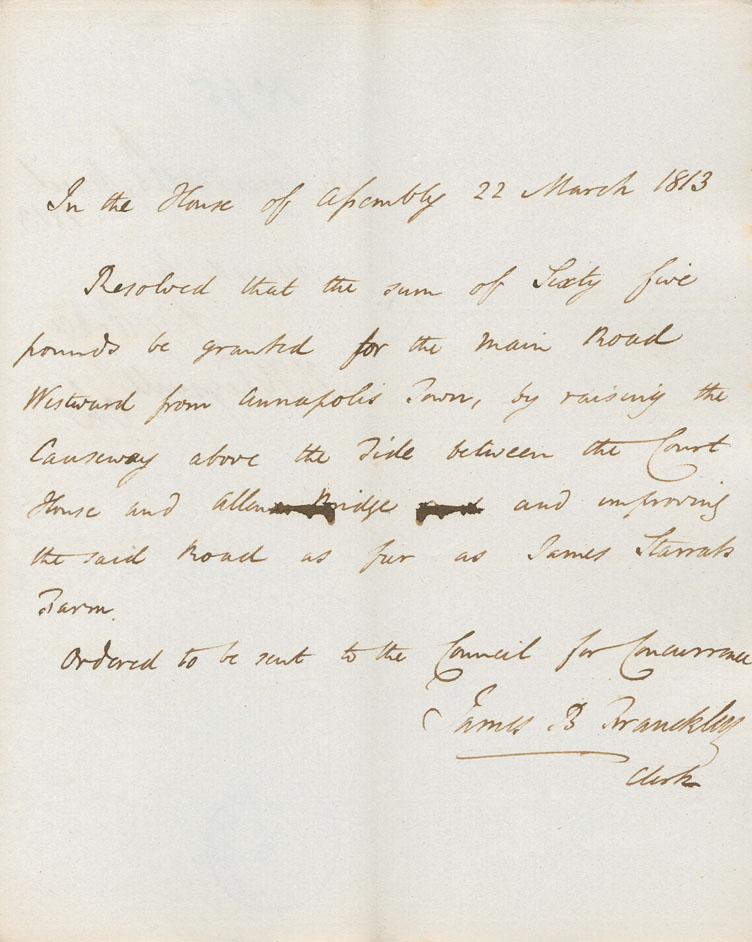 In the House of Assembly 22 March 1813
Resolved that the sum of Sixty five
pounds be granted for the main Road
Westward from Annapolis Town, by raising the
Causeway above the Tide between the Court
House and Allens Bridge and improving
the said Road as far as James Starrats
Farm.
Ordered to be sent to the Council for Concurrence
James B Franckley
Clerk